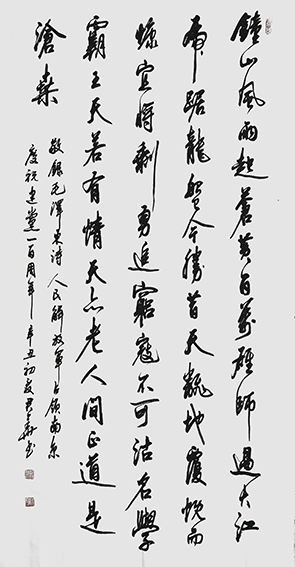 鐘山風雨起蒼黃百萬雄師過大江
虎踞龍盤今勝昔天翻地覆慨而
慷宜將剩勇追窮寇不可沽名學
霸王天若有情天亦老人間正道是
滄桑
敬錄毛澤東詩人民解放軍占領南京
慶祝建黨一百周年辛丑初夏